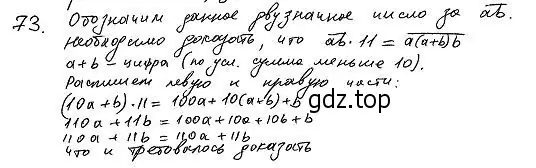 73. Обозначим данное двузначное число за ab.
Необходимо доказать, что ab · 11 = a(a+b)b
a+b - цифра (по усл. сумма меньше 10).
Распишем левую и правую части:
(10a+b)·11 = 100a+10(a+b)+b
110a+11b = 100a+10a+10b+b
110a+11b = 110a+11b
что и требовалось доказать
гдз.top